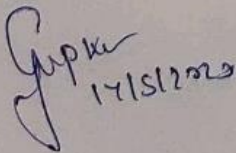 Gupta
17/5/2020